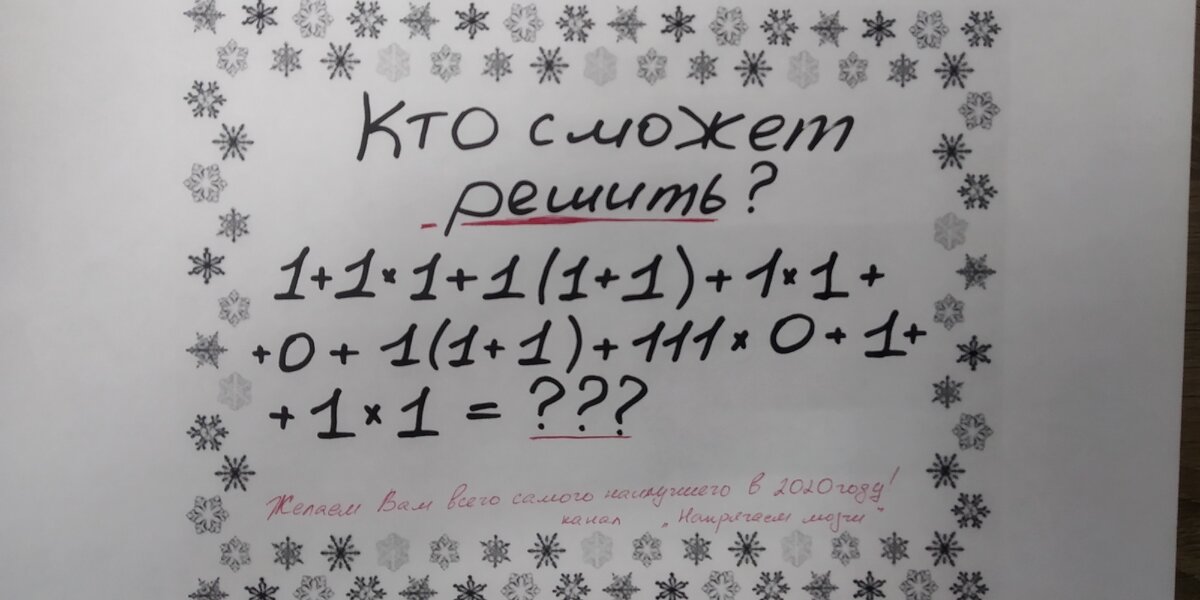 Кто сможет
решить?
1+1×1+1(1+1)+1×1+
+0+1(1+1)+111×0+1+
+1×1=???
Желаем Вам всего самого наилучшего в 2020 году!
канал „Напрягаем мозги"